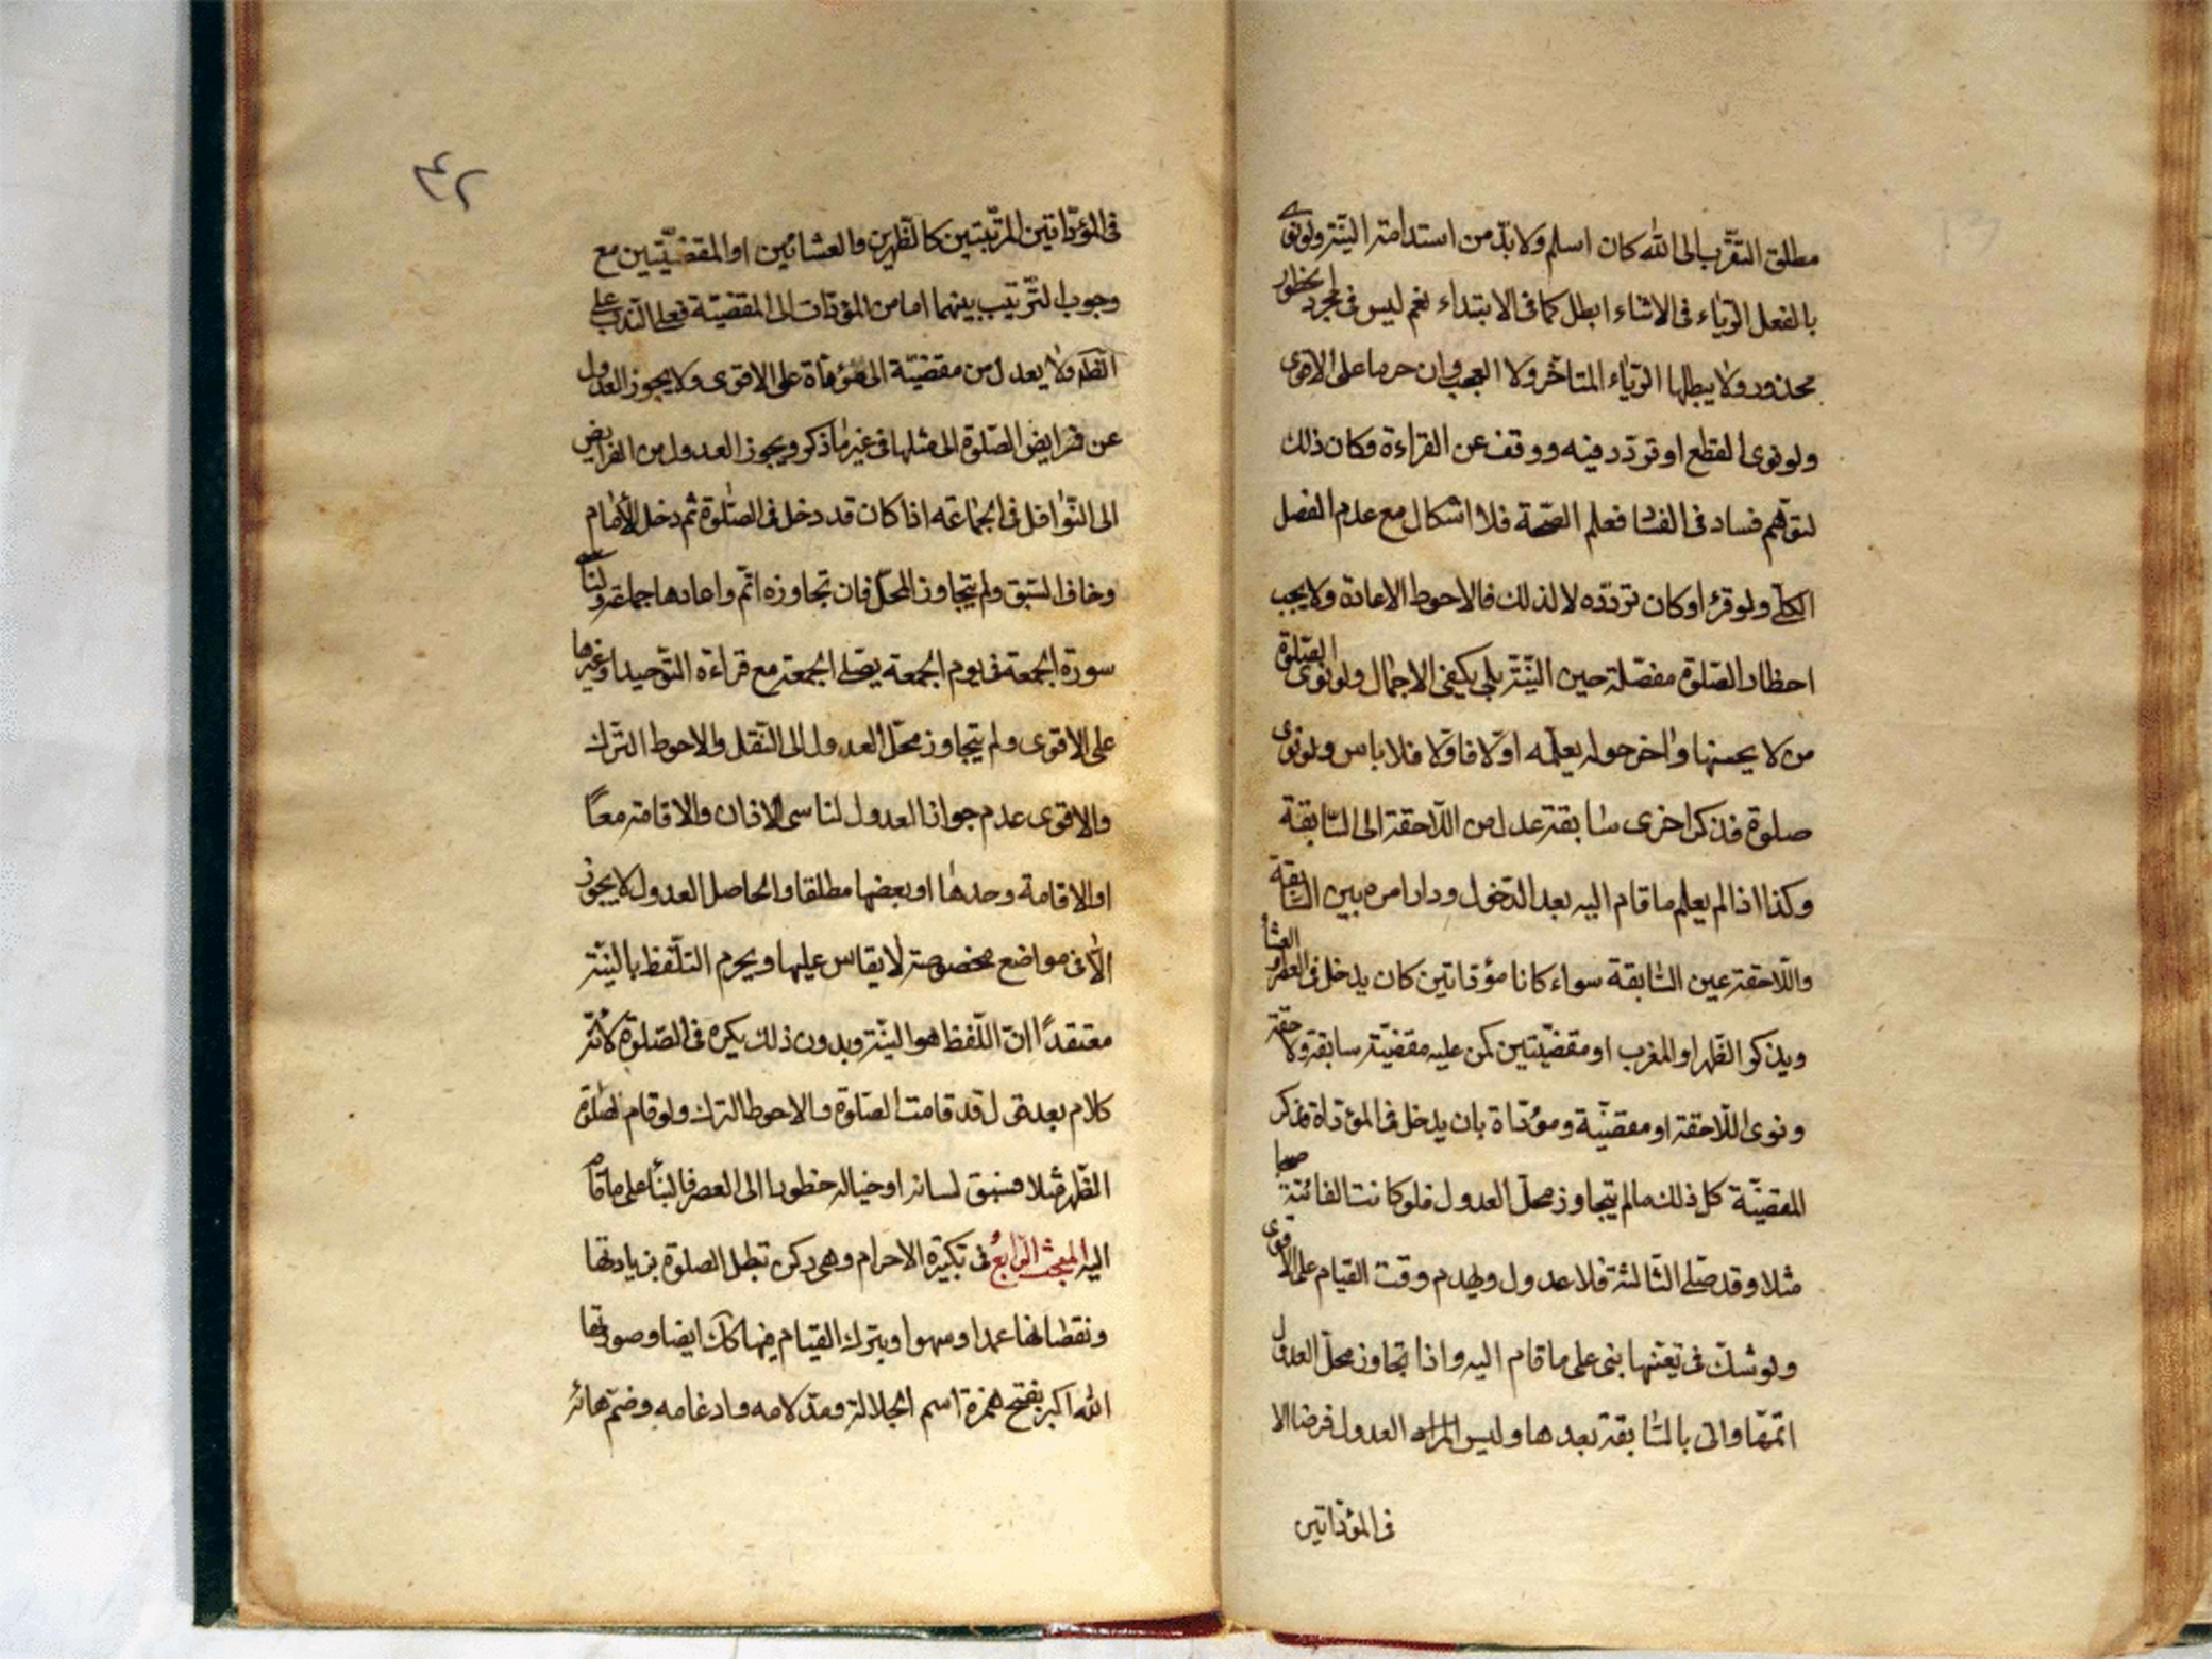 مطلق التقرّب الى الله كان اسلم ولا بدّ من استدامة النيّة ولو نوى
بالفعل الرياء فى الاثناء ابطل كما فى الابتداء نعم ليس فى مجرد الخطور
محذور ولا يبطلها الرياء المتاخر ولا العجب وان حرما على الاقوى
ولو نوى القطع او تردد فيه ووقف عن القراءة وكان ذلك
لتوهّم فساد فى فعلم الصّحة فلا اشكال مع عدم الفصل
الكلّى ولو قرء او كان تردّده لا لذلك فالاحوط الاعادة ولا يجب
احظار الصّلوة مفصّلة حين النيّة بلى يكفى الاجمال ولو نوى الصّلوة
من لا يحسنها واخر حوله يعلّمه اوّلا فاوّلا فلا باس ولو نوى
صلوة فذكر اخرى سابقة عدل من اللّاحقة الى السّابقة
وكذا اذا لم يعلم ما قام اليه بعد الدّخول ودار امره بين السّابقة
واللّاحقة عين السّابقة سواء كانا مؤدّاتين كان يدخل فى العصر او العشا
ويذكر الظّهر او المغرب او مقضيّتين كمن عليه مقضيّة سابقة ولاحقة
ونوى اللّاحقة او مقضيّة ومؤدّاة بان يدخل فى المؤدّاة فيذكر
المقضيّة كل ذلك مالم يتجاوز محلّ العدول فلو كانت الفائتة صبحا
مثلا وقد صلّى الثّالثة فلا عدول ويهدم وقت القيام على الاقوى
ولو شكّ فى تعيّنها بنى على ما قام اليه واذا تجاوز محلّ العدول
اتمّها واتى بالسّابقة بعدها وليس المراد العدول فرضا الا
فى المؤدّاتين
٤٢
فى المؤدّاتين المرتّبتين كالظّهرين والعشائين او المقضيّتين مع
وجوب التّرتيب بينهما اما من المؤدّات الى المقضيّة فعلى النّدب على
ولا يعدل من مقضيّة الى مؤدّاة على الاقوى ولا يجوز العدول
عن فرايض الصّلوة الى مثلها فى غير ما ذكر ويجوز العدول من الفرايض
الى النّوافل فى الجماعة اذا كان قد دخل فى الصّلوة ثم دخل الامام
وخاف السّبق ولم يتجاوز المحلّ فان تجاوزه اتمّ واعادها جماعة ولناسى
سورة الجمعة فى يوم الجمعة يصلّى الجمعة مع قراءة التّوحيد او غيرها
على الاقوى ولم يتجاوز محلّ العدول الى النّقل والاحوط الترك
والاقوى عدم جواز العدول لناسى الاذان والاقامة معًا
او الاقامة وحدها او بعضها مطلقا والحاصل العدول لا يجوز
الّا فى مواضع مخصوصة لا يقاس عليها ويحرم التلّفظ بالنيّة
معتقدًا انّ اللّفظ هو النيّة وبدون ذلك يكره فى الصّلوة لانّه
كلام بعد قول قد قامت الصّلوة فالاحوط الترك ولو قام لصلوة
الظّهر مثلا فسبق لسانه او خياله خطورا الى العصر فالبناء على ما قام
اليه المبحث الرّابع فى تكبيرة الاحرام وهى ركن تبطل الصلوة بزيادتها
ونقصانها عمدا وسهوا وبترك القيام فيها كك ايضا وصورتها
الله اكبر بفتح همزة اسم الجلالة ومدّ لامه وادغامه وضمّ هائه